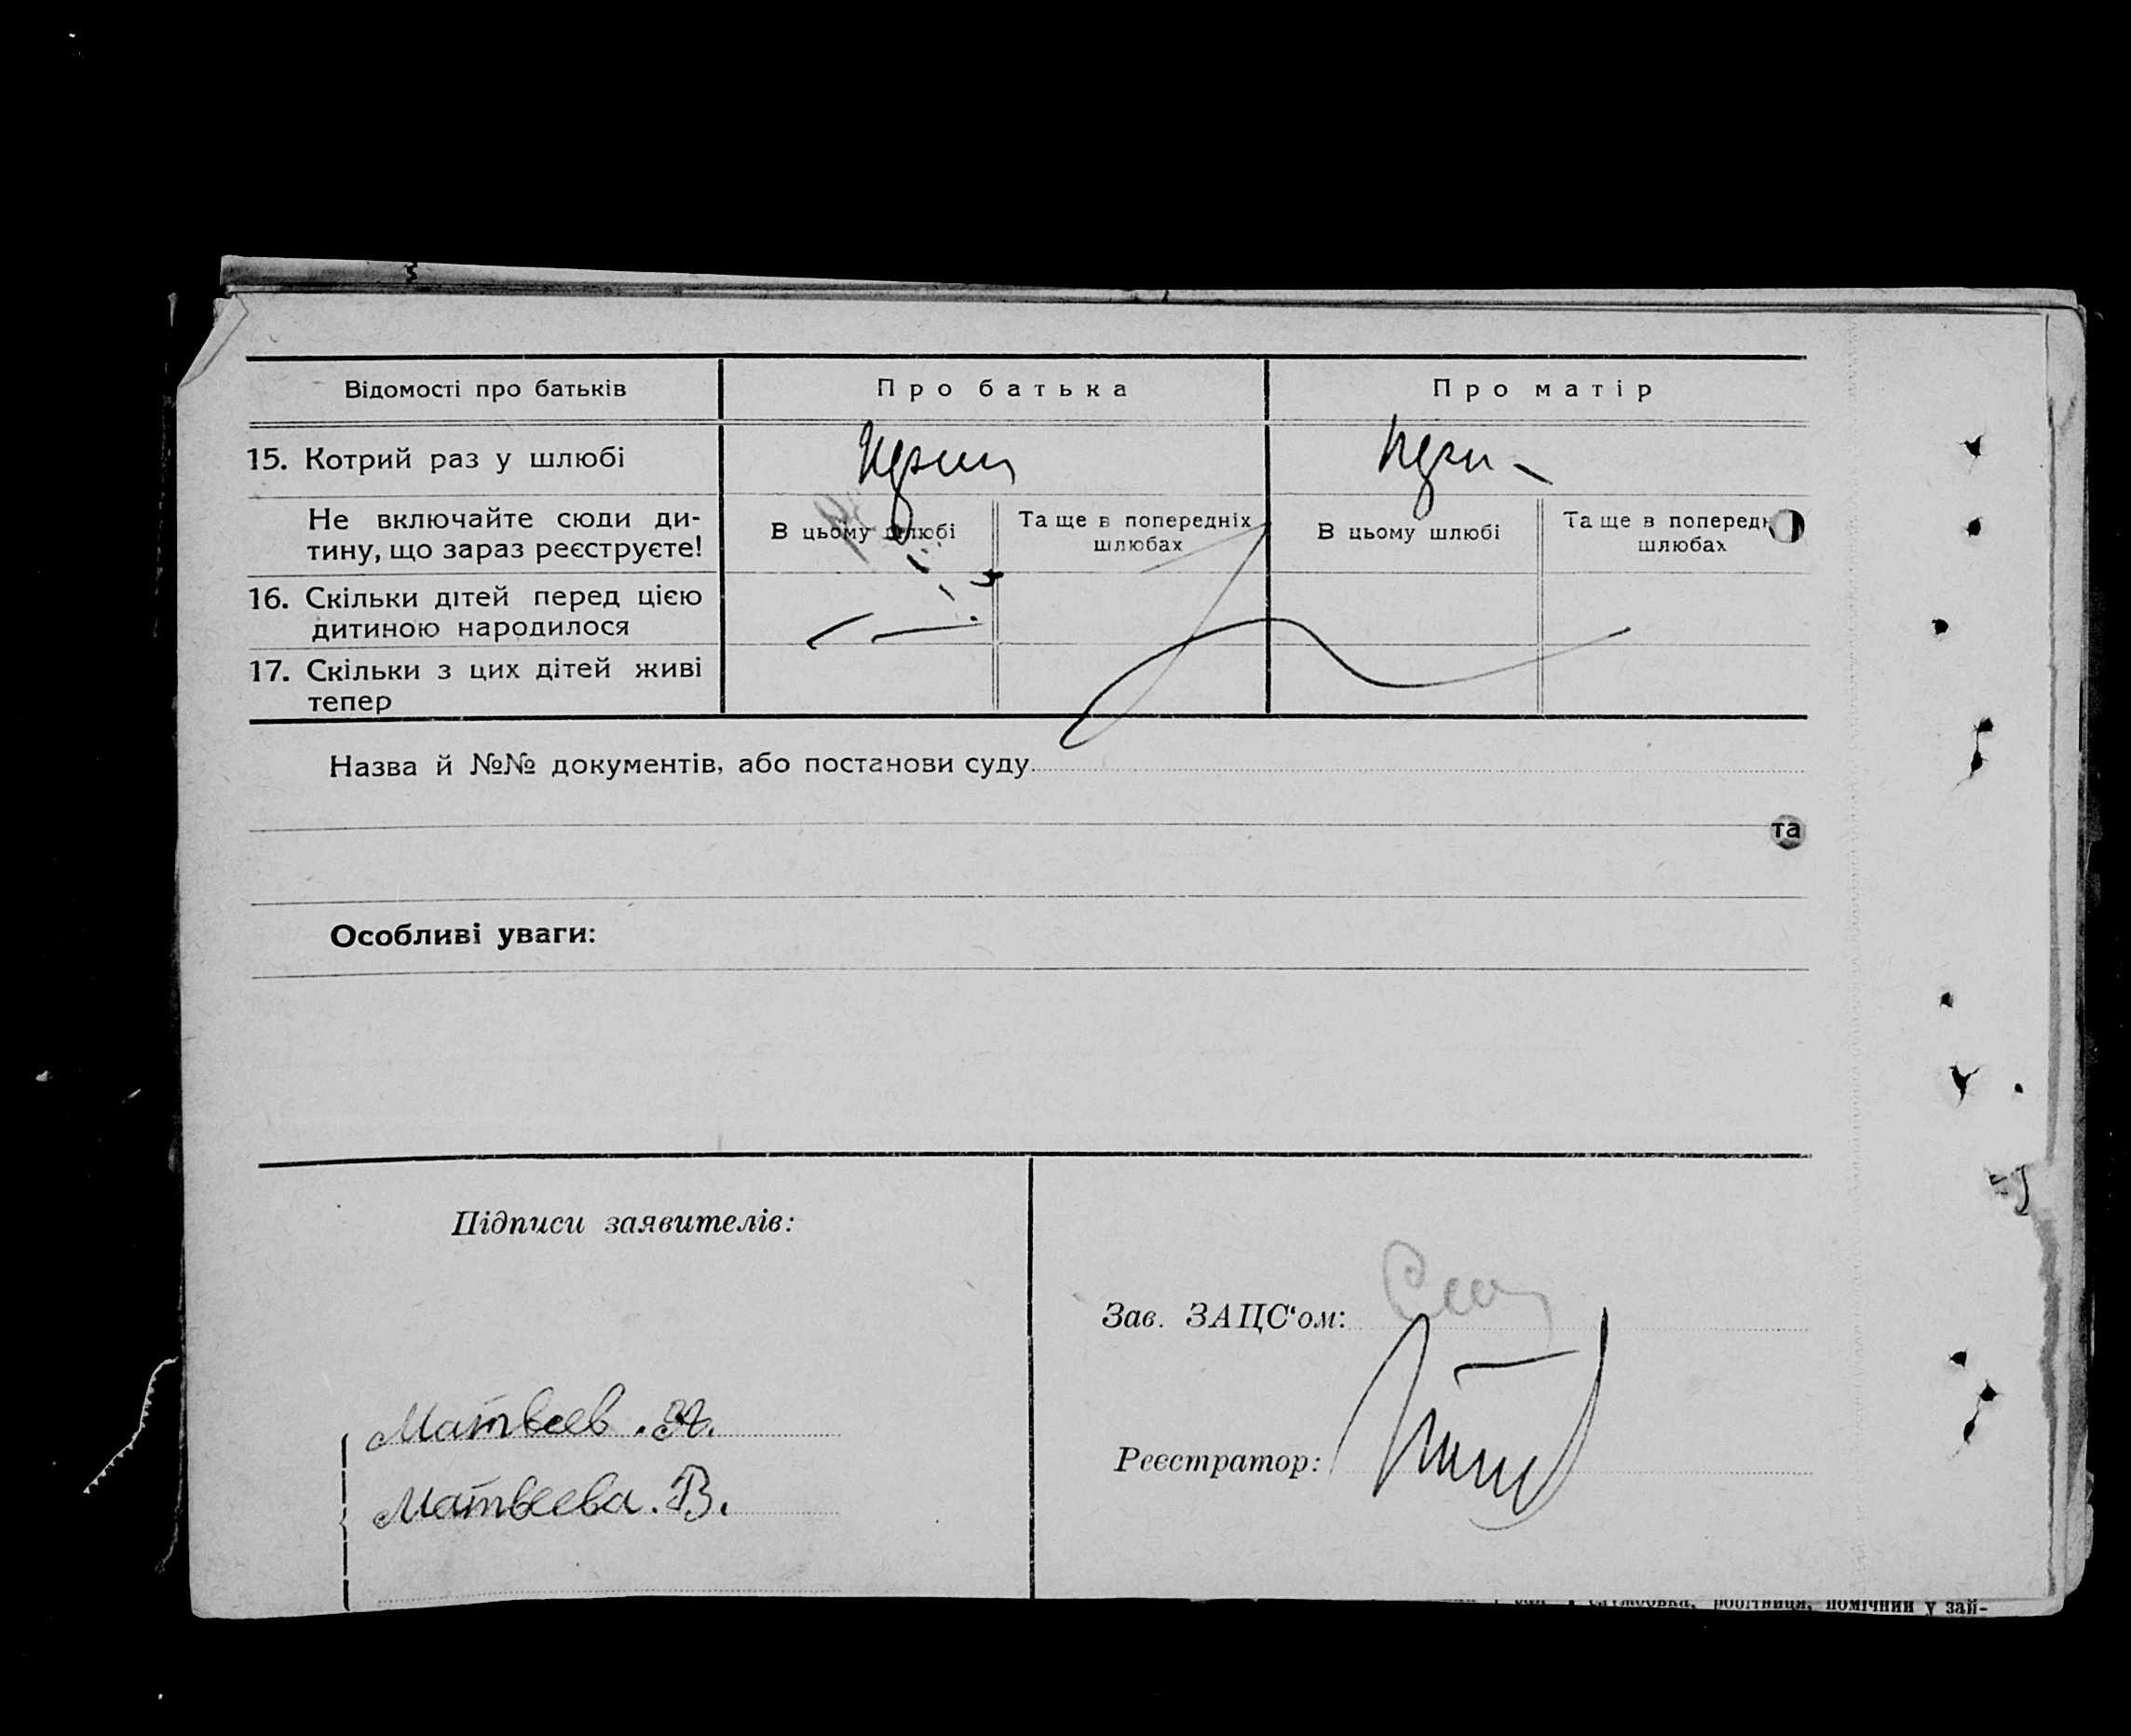 Відомості про батьків
Про батька
Про матір
15. Котрий раз у шлюбі
Не включайте сюди ди-
тину, що зараз реєструєте!
В цьому шлюбі
Та ще в попередніх
шлюбах
В цьому шлюбі
Та ще в
шлюбах
16. Скільки дітей перед цією
дитиною народилося
17. Скільки з цих дітей живі
тепер
Назва й №№ документів, або постанови суду
та
Особливі уваги:
Підписи заявителів:
Зав. ЗАЦС‘ом:
Матвеев.
Реєстратор:
Матвеева. В.
помічний у зай-